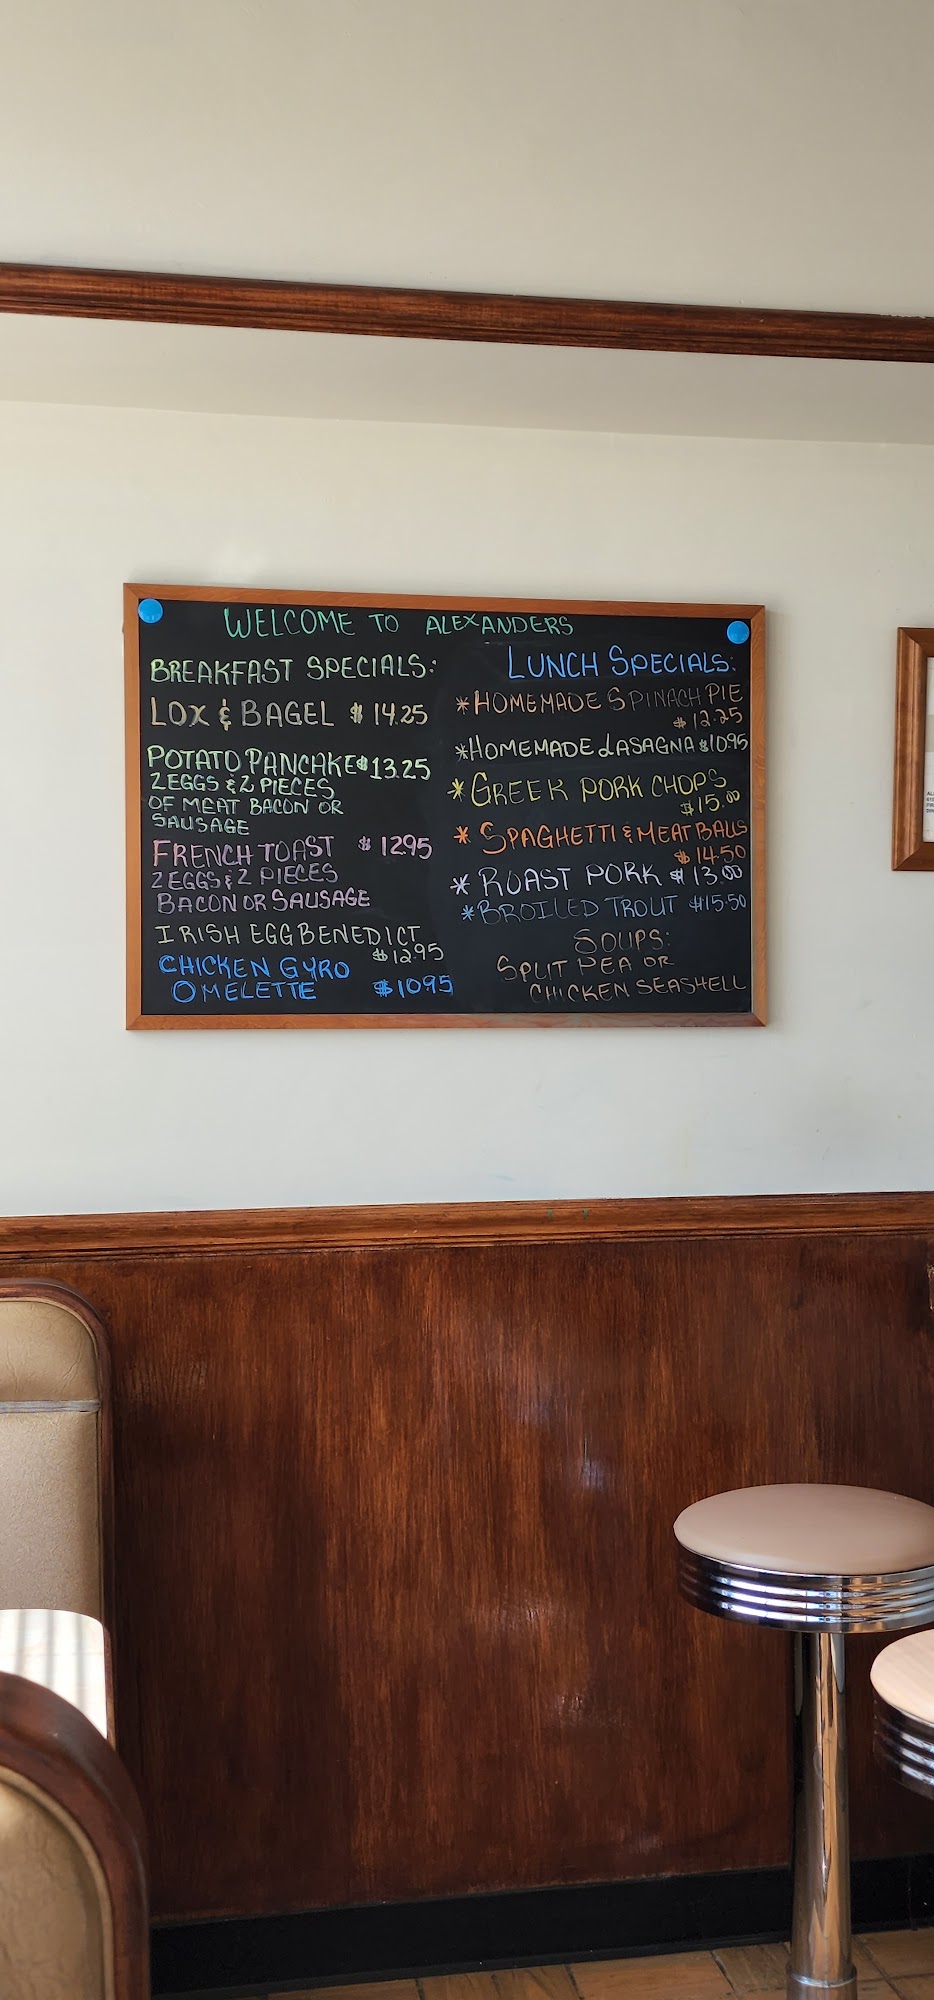 WELCOME TO ALEXANDERS
BREAKFAST SPECIALS:
LOX & BAGEL $ 14.25
POTATO PANCAKE $13.25
2 EGGS & 2 PIECES
OF MEAT BACON OR
SAUSAGE
FRENCH TOAST $ 1295
2 EGGS & 2 PIECES
BACON OR SAUSAGE
IRISH EGG BENEDICT
$12.95
CHICKEN GYRO
OMELETTE $1095
LUNCH SPECIALS:
*HOMEMADE SPINACH PIE
$ 12.25
*HOMEMADE LASAGNA $1095
*GREEK PORK CHOPS
$15.00
* SPAGHETTI & MEATBALLS
$ 14.50
* ROAST PORK $ 13.00
*BROILED TROUT $15.50
SOUPS:
SPLIT PEA OR
CHICKEN SEASHELL